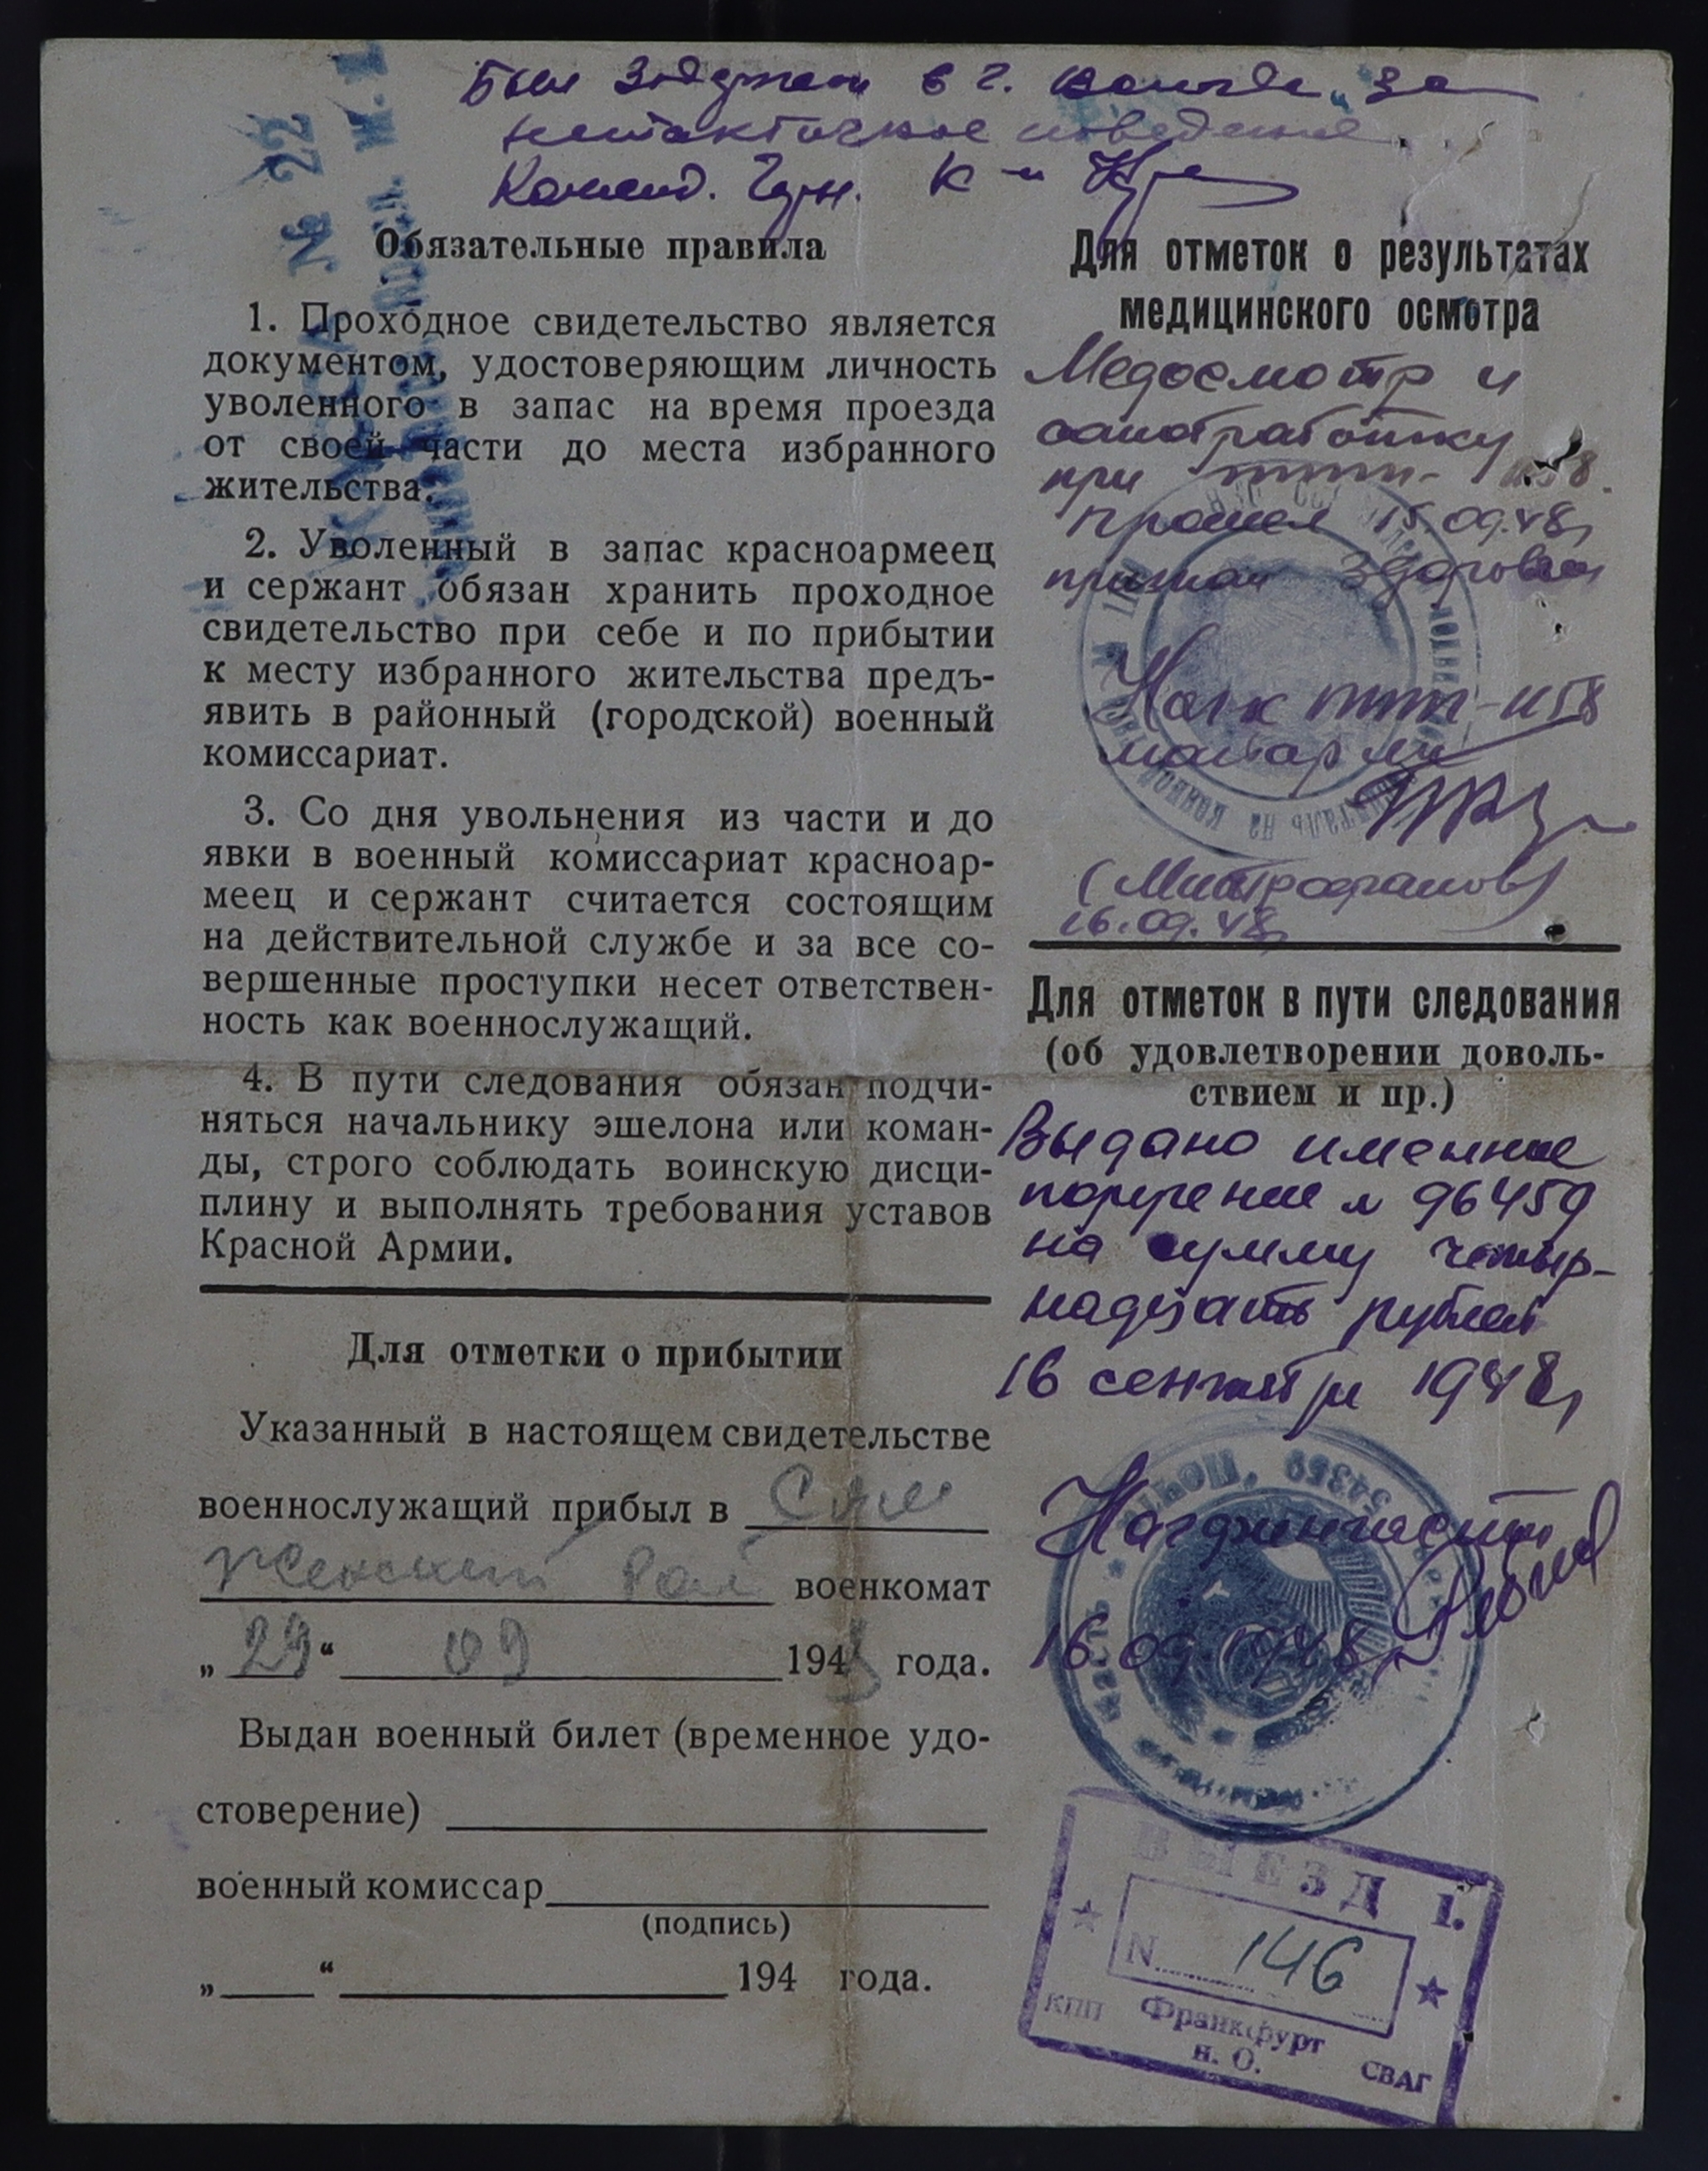 Был задержан в г. за
нетактичное поведение
Коменд. Гарн. к-н
№ 22
Обязательные правила
1. Проходное свидетельство является
документом, удостоверяющим личность
уволенного в запас на время проезда
от своей части до места избранного
жительства.
2. Уволенный в запас красноармеец
и сержант обязан хранить проходное
свидетельство при себе и по прибытии
к месту избранного жительства предъ-
явить в районный (городской) военный
комиссариат.
3. Со дня увольнения из части и до
явки в военный комиссариат красноар-
меец и сержант считается состоящим
на действительной службе и за все со-
вершенные проступки несет ответствен-
ность как военнослужащий.
4. В пути следования обязан подчи-
няться начальнику эшелона или коман-
ды, строго соблюдать воинскую дисци-
плину и выполнять требования уставов
Красной Армии.
Для отметки о прибытии
Указанный в настоящем свидетельстве
военнослужащий прибыл в
рай военкомат
„29“ 09 1948 года.
Выдан военный билет (временное удо-
стоверение)
военный комиссар
(подпись)
„ “ 194 года.
Для отметок о результатах
медицинского осмотра
Медосмотр и
санобработку
при
прошел 15.09.48г
признан здоровым
Нач
(Митрофанов)
16.09.48г
Для отметок в пути следования
(об удовлетворении доволь-
ствием и пр.)
Выдано именное
поручение № 96459
на сумму четыр-
надцать рублей
16 сентября 1948г
Начфин части
16.09.1948г
54359
часть
ВЫЕЗД 1.
N 146
КПП Франкфурт СВАГ
н. О.